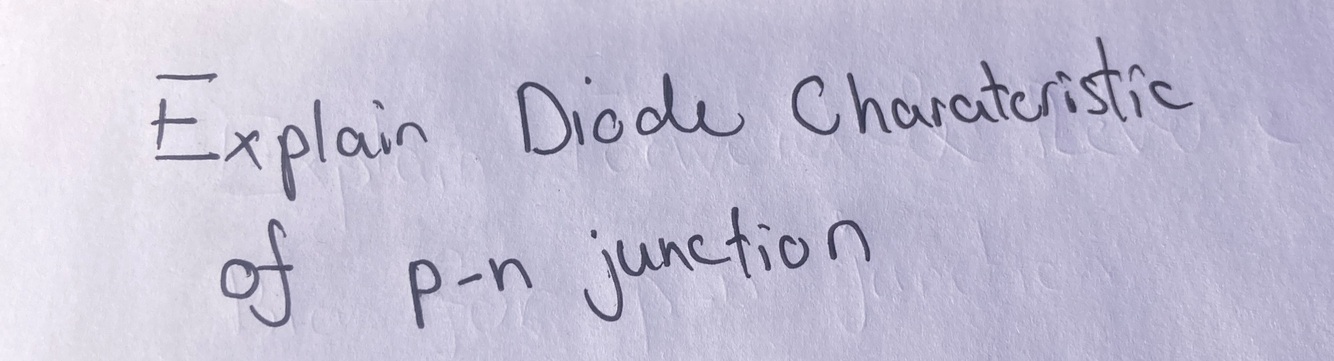 Explain Diode Charateristic
of p-n junction